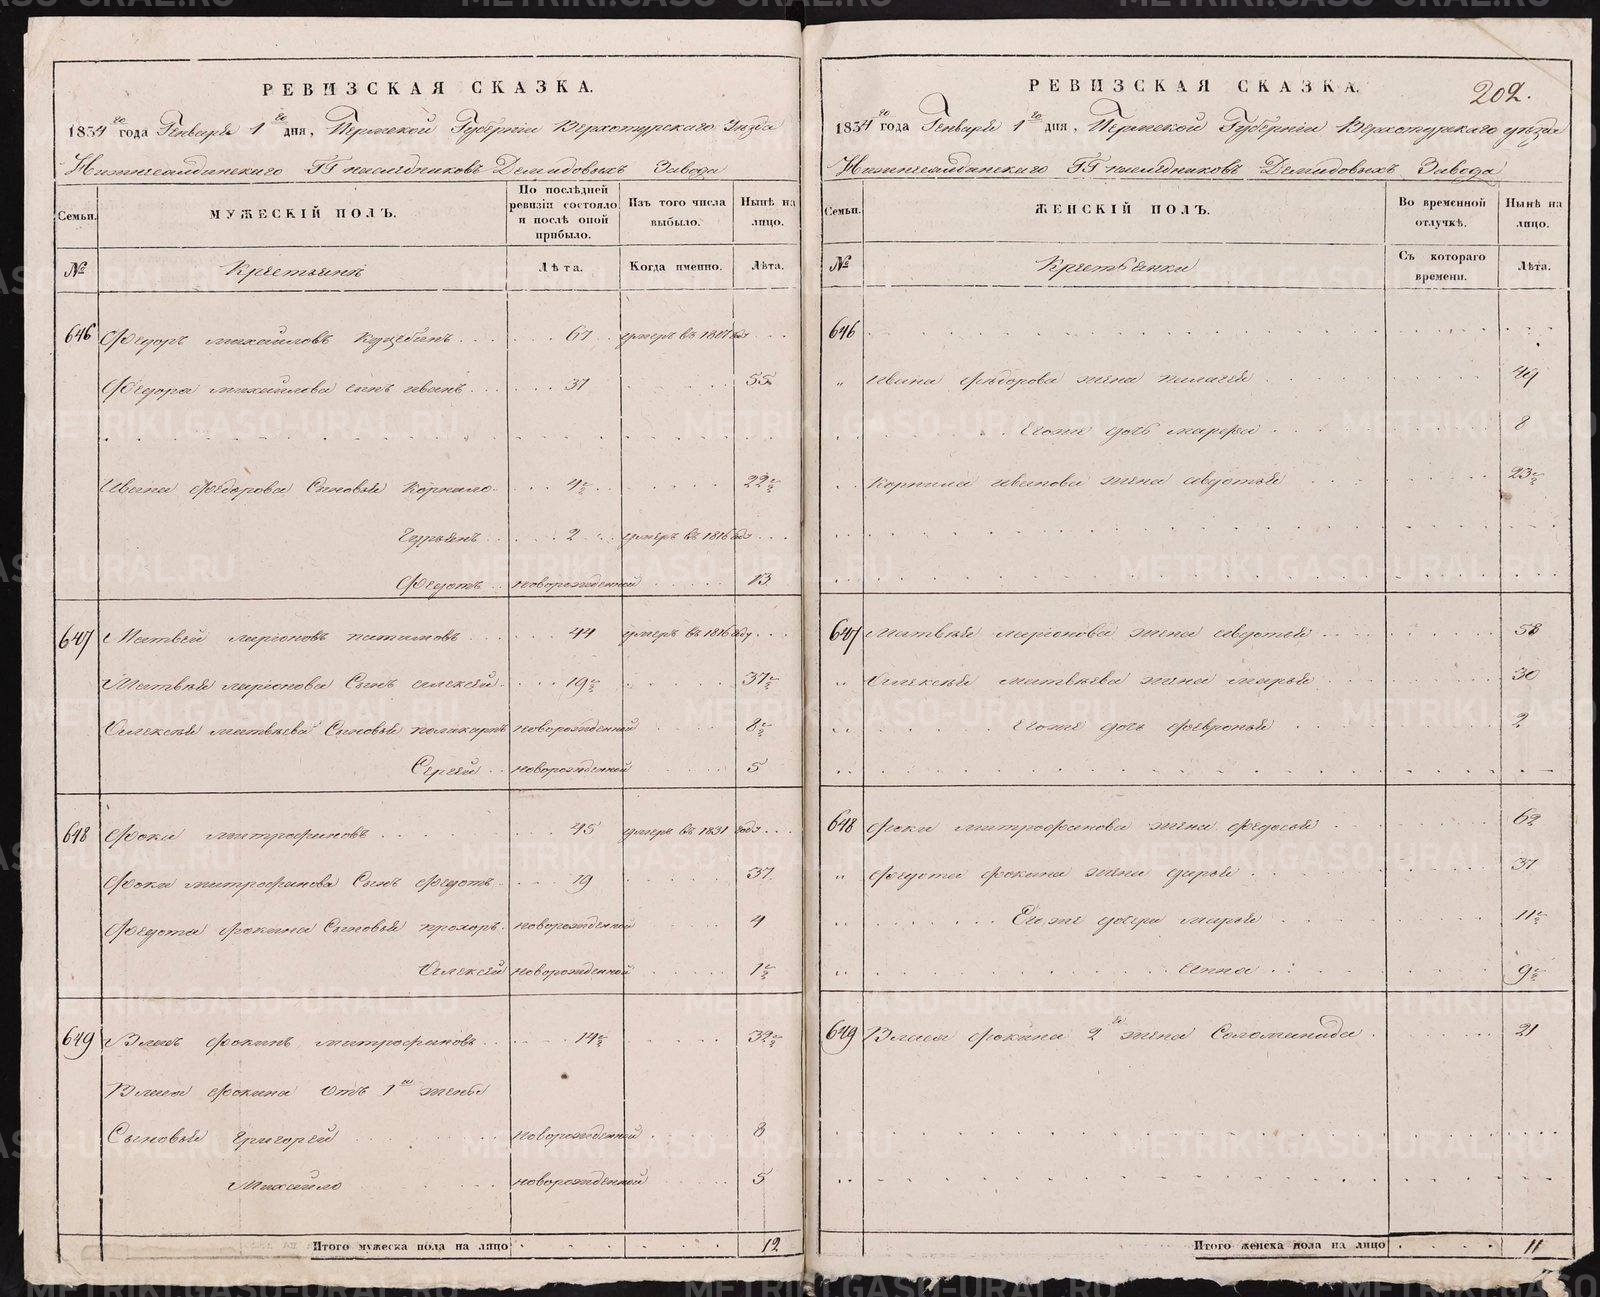 РЕВИЗСКАЯ СКАЗКА.
1834 го года Генваря 1 го дня, Пермской Губернiи Верхотурскаго Уѣзда
Нижнесалдинскаго ГГ наслѣдниковъ Демидовыхъ Завода
Семьи. МУЖЕСКIЙ ПОЛЪ. По послѣдней ревизiи состояло и послѣ оной прибыло. Изъ того числа выбыло. Нынѣ на лицо.
№ Крестьянъ Лѣта. Когда именно. Лѣта.
646 Федоръ Михайловъ 67 умеръ въ 1817 году
Федора Михайлова сынъ Иванъ 37 55
Ивана Федорова Сыновья Корнило 4½ 22½
Гурьянъ 2 умеръ въ 1816 году
Федотъ новорожденной 13
647 Матвей Ларiоновъ Патимовъ 44 умеръ въ 1816 году
Матвѣя Ларiонова Сынъ Алексей 19½ 37½
Алексѣя Матвѣева Сыновья Поликарпъ новорожденной 8½
Сергей новорожденной 5
648 Фока Митрофановъ 45 умеръ въ 1831 годѣ
Фоки Митрофанова Сынъ Федотъ 19 37
Федота Фокина Сыновья Прохоръ новорожденной 4
Алексей новорожденной 1½
649 Власъ Фокинъ Митрофановъ 14½ 32½
Власа Фокина Отъ 1 ой жены
Сыновья Григорей новорожденной 8
Михайло новорожденной 5
Итого мужеска пола на лицо 12
РЕВИЗСКАЯ СКАЗКА. 202.
1834 го года Генваря 1 го дня, Пермской Губернiи Верхотурскаго уѣзда
Нижнесалдинскаго ГГ наслѣдниковъ Демидовыхъ Завода
Семьи. ЖЕНСКIЙ ПОЛЪ. Во временной отлучкѣ. Нынѣ на лицо.
№ Крестьянки Съ котораго времени. Лѣта.
646
" Ивана Федорова жена Пелагея 49
Егоже дочь Марфа 8
Корнила Иванова жена Авдотья 23½
647 Матвѣя Ларiонова жена Авдотья 58
" Алексѣя Матвѣева жена Марья 30
Егоже дочь Февронья 2
648 Фоки Митрофанова жена Федосья 62
" Федота Фокина жена Дарья 37
Егоже дочери Марья 11½
Анна 9½
649 Власа Фокина 2 ая жена Соломанида 21
Итого женска пола на лицо 11
METRIKI.GASO-URAL.RU